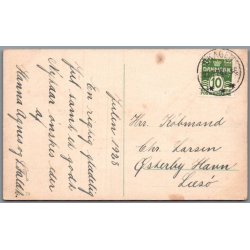 Julen 1928
En rigtig glædelig
Jul samt et godt
Nytaar ønskes eder
af
Hanna Agnes og
DANMARK
10
Hrr. Købmand
Chr. Larsen
Østerby Havn
Læsø